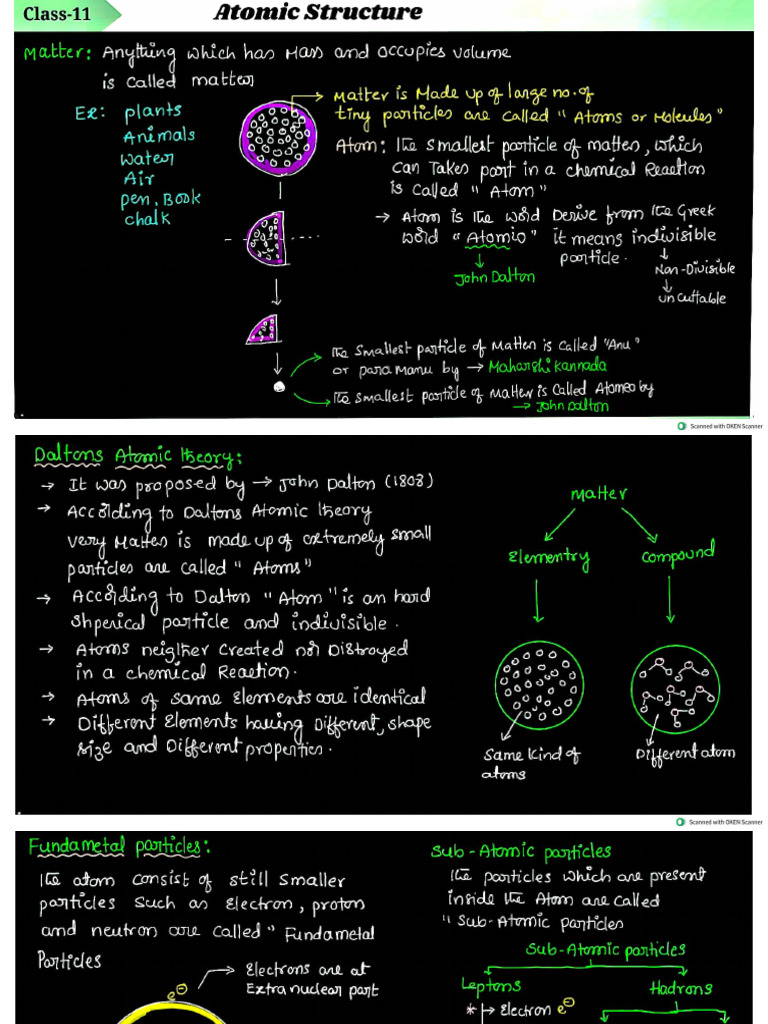 Class-11
Atomic Structure
Matter: Anything which has Mass and occupies volume
is called matter
Ex: plants
Animals
Water
Air
pen, Book
chalk
→ Matter is Made up of large no. of
tiny particles are called "Atoms or Molecules"
Atom: The smallest particle of matter, which
can Takes part in a chemical Reaction
is called "Atom"
→ Atom is the word Derive from the Greek
word "Atomio" it means indivisible
particle.
John Dalton
Non-Divisible
uncuttable
The smallest particle of Matter is called "Anu"
or paramanu by → Maharshi kannada
The smallest particle of Matter is called Atomeo by
→ John Dalton
Scanned with OKEN Scanner
Daltons Atomic theory:
→ It was proposed by → John Dalton (1808)
→ According to Daltons Atomic theory
very Matter is made up of extremely small
particles are called "Atoms"
→ According to Dalton "Atom" is an hard
shperical particle and indivisible.
→ Atoms neighther created nor Distroyed
in a chemical Reaction.
→ Atoms of same Elements are identical
→ Different Elements having Different, shape
size and Different properties.
Matter
Elementry
compound
Same kind of
atoms
Different atom
Scanned with OKEN Scanner
Fundametal particles:
The atom consist of still smaller
particles such as Electron, proton
and neutron are called "Fundametal
Particles
→ Electrons are at
Extra nuclear part
e⊖
Sub-Atomic particles
The particles which are present
inside the Atom are called
"Sub-Atomic particles
Sub-Atomic particles
Leptons
Hadrons
* → Electron e⊖